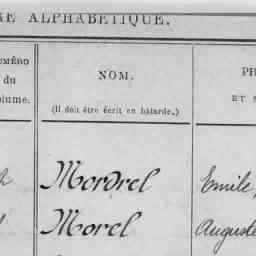 RE ALPHABÉTIQUE.
UMÉRO
du
olume.
NOM.
(Il doit être écrit en bâtarde.)
PR
ET S
Mordrel
Emile,
Morel
Auguste